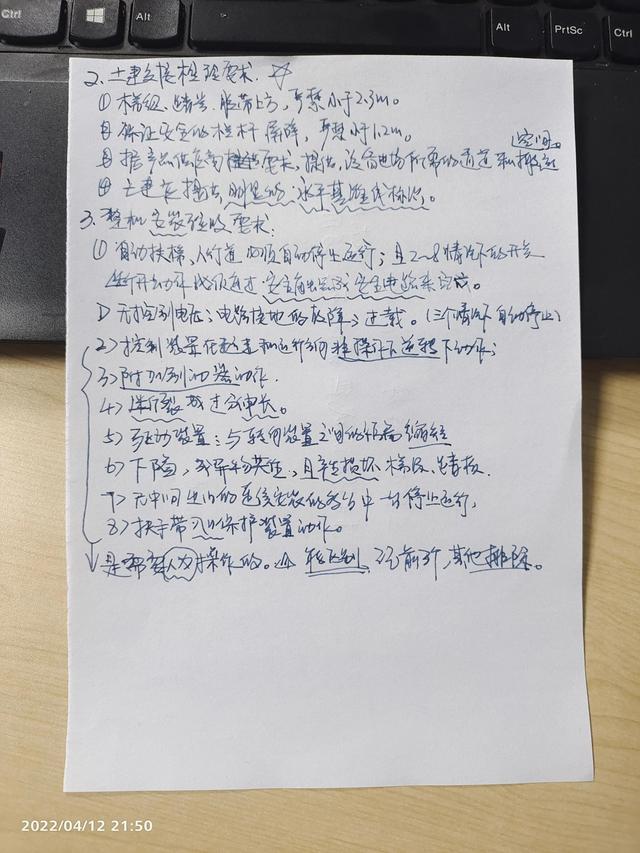 Ctrl
Alt
Alt
PrtSc
Ctrl
2. 土建交接检验要求. ☆
① 梯级、踏板、胶带上方，严禁小于2.3m。
② 保证安全的栏杆 屏障，严禁小于1.2m。
空间。
③ 根据产品供应商要求，提供，设备进场所需的通道和搬运
④ 土建应提供明显的 水平基准线标识。
3. 整机安装验收要求.
① 自动扶梯、人行道 必须自动停止运行；且2~8情况下的开关
断开动作必须通过 安全触点或安全电路来完成。
1> 无控制电压；电路接地的故障；过载。(三个情况下 自动停止)
2> 控制装置在超速和运行方向非操作下逆转下动作；
3> 附加制动器动作.
4> 断裂或过分伸长。
5> 驱动装置：与转向装置之间的距离缩短
6> 下陷，或异物夹住，且损坏梯级、踏板.
7> 无中间出口的连续安装的多台中一台停止运行.
8> 扶手带入口保护装置动作。
是需要人为操作的。 记前3个，其他排除。
2022/04/12 21:50